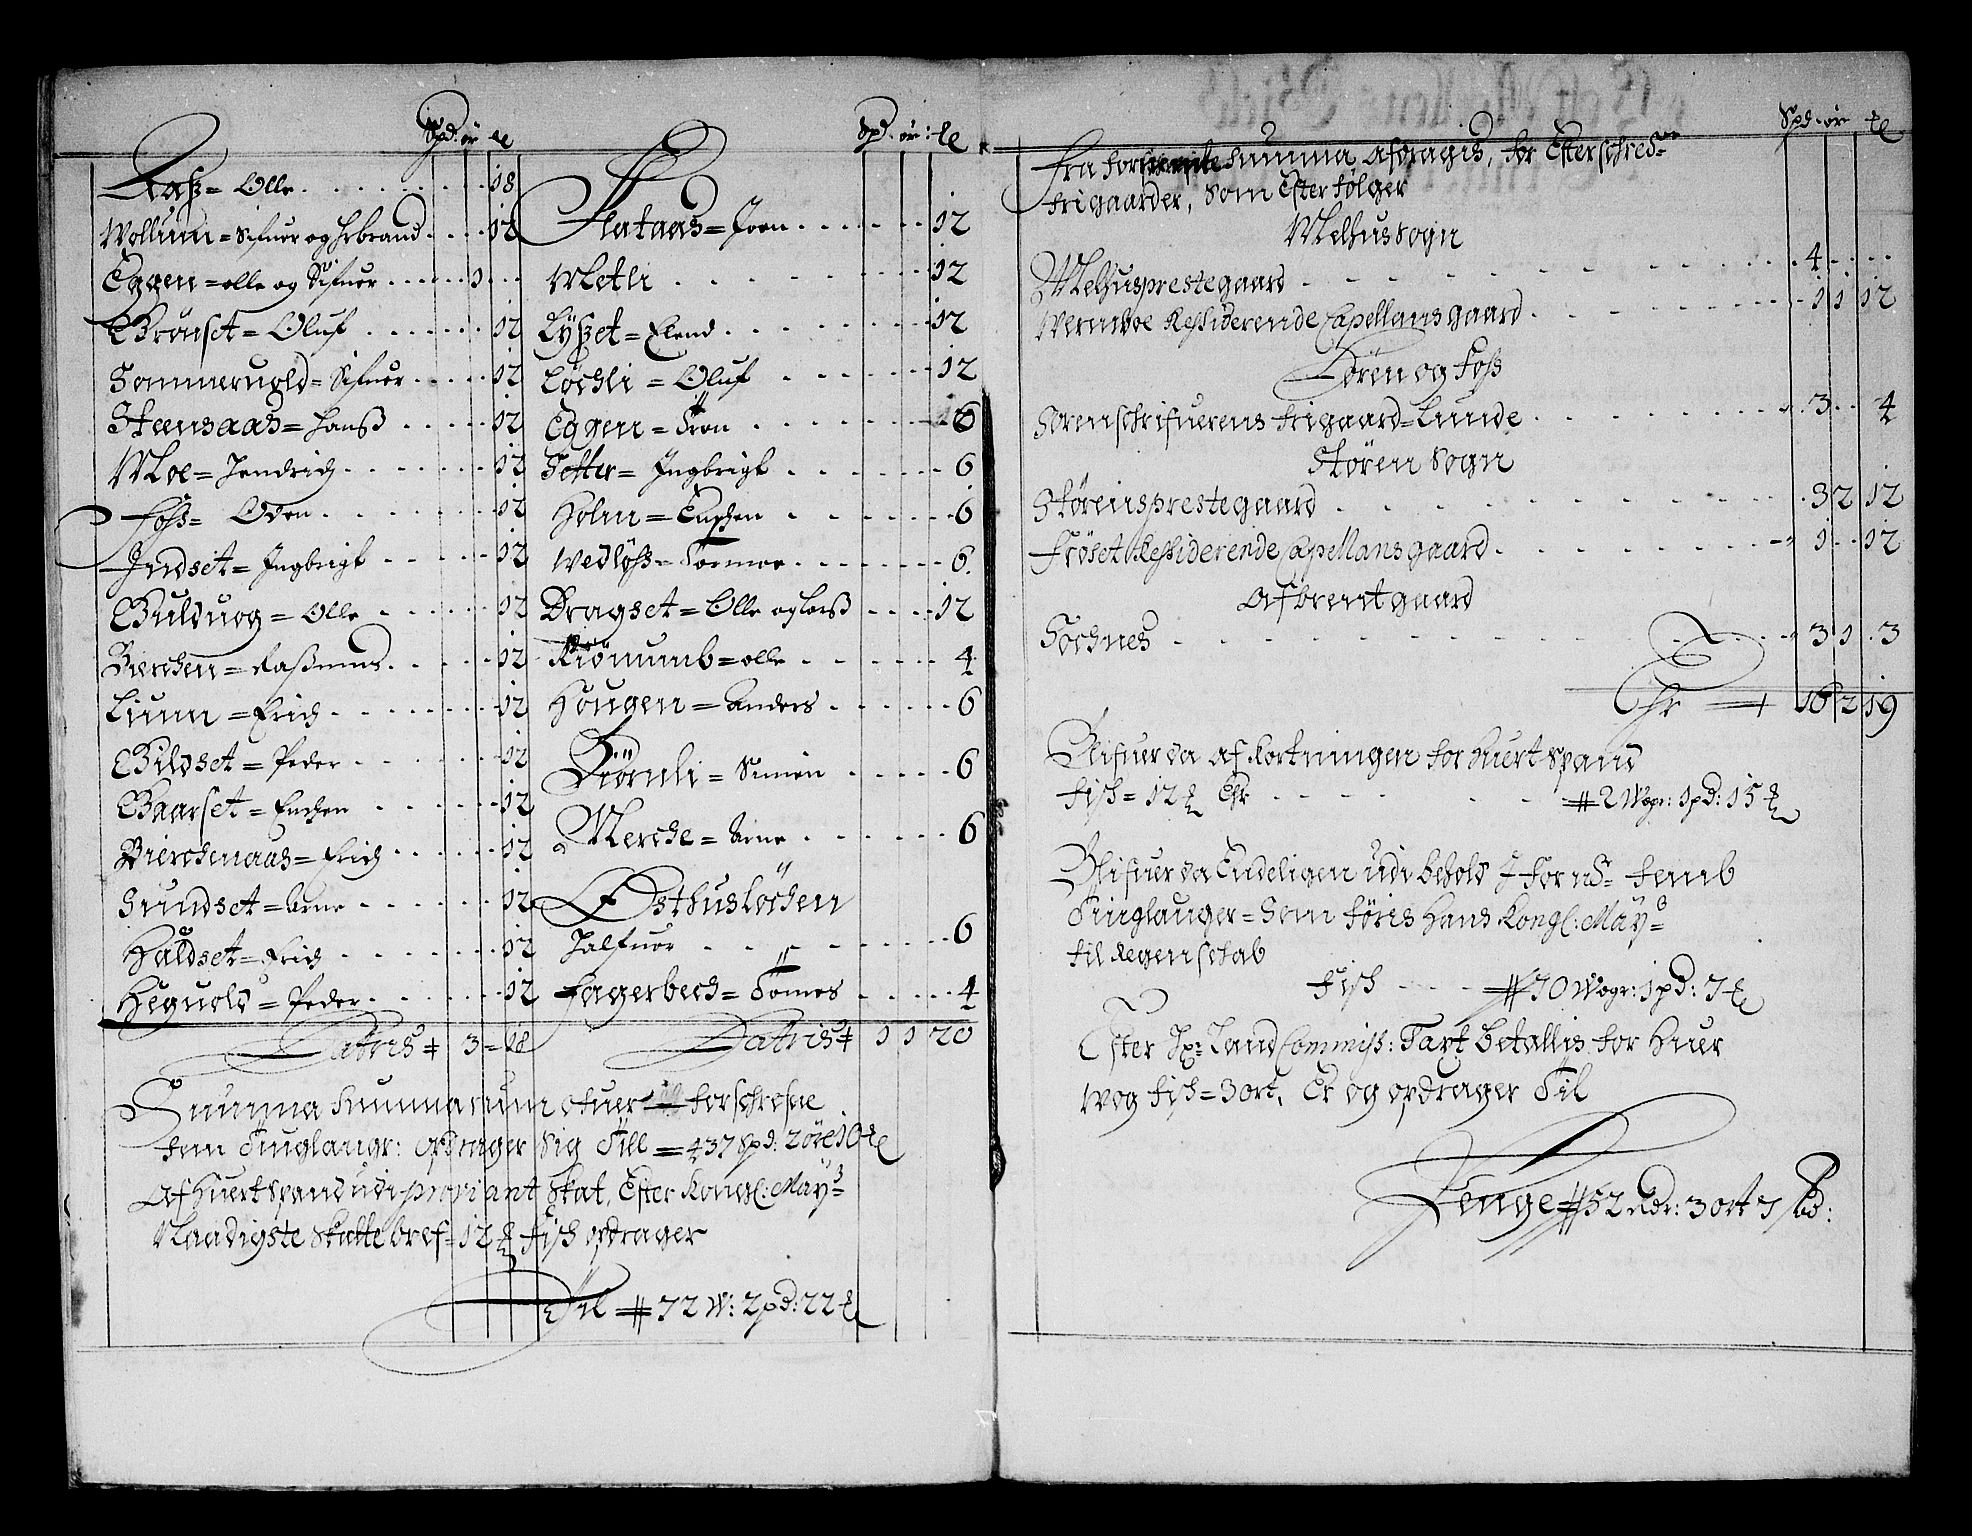 Spd. ør te
Aass= Olle 18
Wollum= Sifuer og Hrbrand 12
Eggen= olle og Sifuer 1
Grønset= Oluf 12
Sommerugld= Sifuer 12
Steensaas= Hanss 12
Moe= Hendrich 12
Foss= Oden 12
Indset= Ingbrigt 12
Gulduog= Olle 12
Bierchen= Rassmus 12
Liumn= Erich 12
Gildset= Peder 12
Gaarset= Enchen 12
Bierchenaas= Erich 12
Sundset= Arne 12
Huldset= Erich 12
Heguold= Peder 12
Latris 3=18
Spd. ør: te
Flataas= Joen 12
Metli 12
Lysset= Elend 12
Løchli= Oluf 12
Eggen= Tron 6
Setter= Ingbrigt 6
Holm= Enchen 6
Wedløss= Tormoe 6
Dragset= Olle og Larss 12
Kiønumb= olle 4
Hougen= Anders 6
Biørnli= Simen 6
Merche= Arne 6
Østhusløchen
Halfuor 6
Fagerbech= Tomes 4
Latris 1 1 20
Summa Summarum ofuer forschrefne
fem Tinglaugr: opdrager Sig Till = 437 Spd: 2 øre 10 te
Af Huert spand udi proviant Skat, Efter Kongl: May:s
Naadigste Skattebref= 12 ℔ fisch opdrager
Til 72 W: 2 pd: 22 ℔
Spd. ør te
Fra forschrefne Summa afdragis, for Efterschred:ne
frigaarder, Som Efter følger
Melhus Sogn
Melhus prestegaard 4
Wermboe Residerende Capellans gaard 1 1 12
Søren og foss
Sørenschrifuerens frigaard= Lunde 3 4
Støren Sogn
Størens prestegaard 3 2 12
Frøset Residerende Capellans gaard 1 12
Afbrent gaard
Søchnes 3 1 3
Er 16 2 19
Blifuer da Afkortningen for Huert Spand
fisch= 12 ℔ Er 2 Wogr: 1 pd: 15 ℔
Blifuer da Endeligen udi behold I for nd:e femb
Tinglauger= Som føris Hans Kongl: May:s
til Regenschab
fisch 70 Wogr: 1 pd: 7 ℔
Efter Land Commiss: Tart betallis for Huer
wog fisch= 3 ort, Er og opdrager Til
Penge 52 Rdr: 3 ort 7